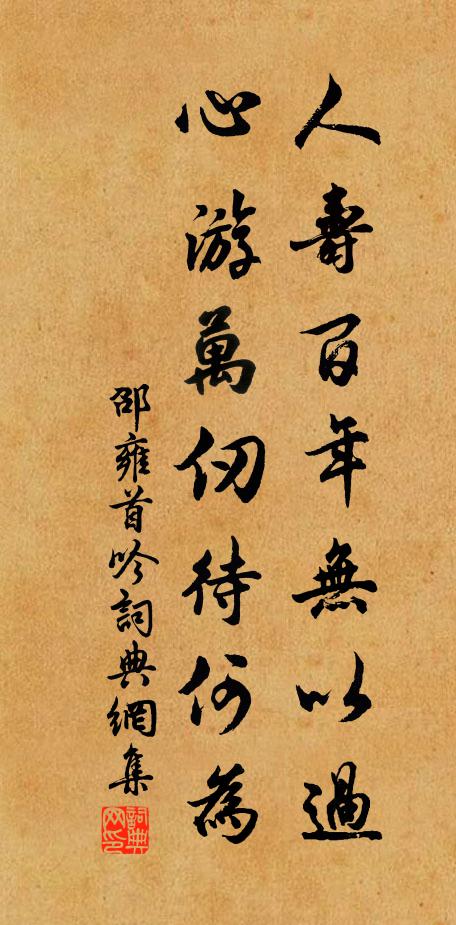 人壽百年無以過
心游萬仞待何為
邵雍首吟詞典網集
詞典网印